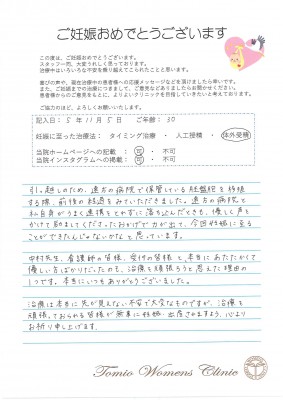 ご妊娠おめでとうございます
この度は、ご妊娠おめでとうございます。
スタッフ一同、大変うれしく思っております。
治療中はいろいろな不安を乗り越えてこられたことと思います。
喜びの声や、現在治療中の患者様への応援メッセージなどを頂けましたら幸いです。
また、ご妊娠までの治療につきまして、ご意見などありましたらお聞かせください。
患者様からのご意見をもとに、よりよいクリニックを目指していきたいと考えております。
ご協力のほど、よろしくお願いいたします。
記入日:5年11月5日 ご年齢:30
妊娠に至った治療法: タイミング治療 ・ 人工授精 ・ 体外受精
当院ホームページへの記載: 可 ・ 不可
当院インスタグラムへの掲載: 可 ・ 不可
引っ越しのため、遠方の病院で保管している胚盤胞を移植
する際、前後の経過をみていただきました。遠方の病院と
私自身がうまく連携をとれずに落ち込んだときも、優しく声を
かけて励ましてくださったおかげで力が出て、今回妊娠に至る
ことができたんじゃないかなと思っています。
中村先生、看護師の皆様、受付の皆様と、本当にあたたかくて
優しい方ばかりだったのも、治療を頑張ろうと思えた理由の
1つです。本当にいつもありがとうございました。
治療は本当に先が見えない不安で大変なものですが、治療を
頑張っておられる皆様が無事に妊娠・出産されますよう、心より
お祈り申し上げます。
Tomio Womens Clinic